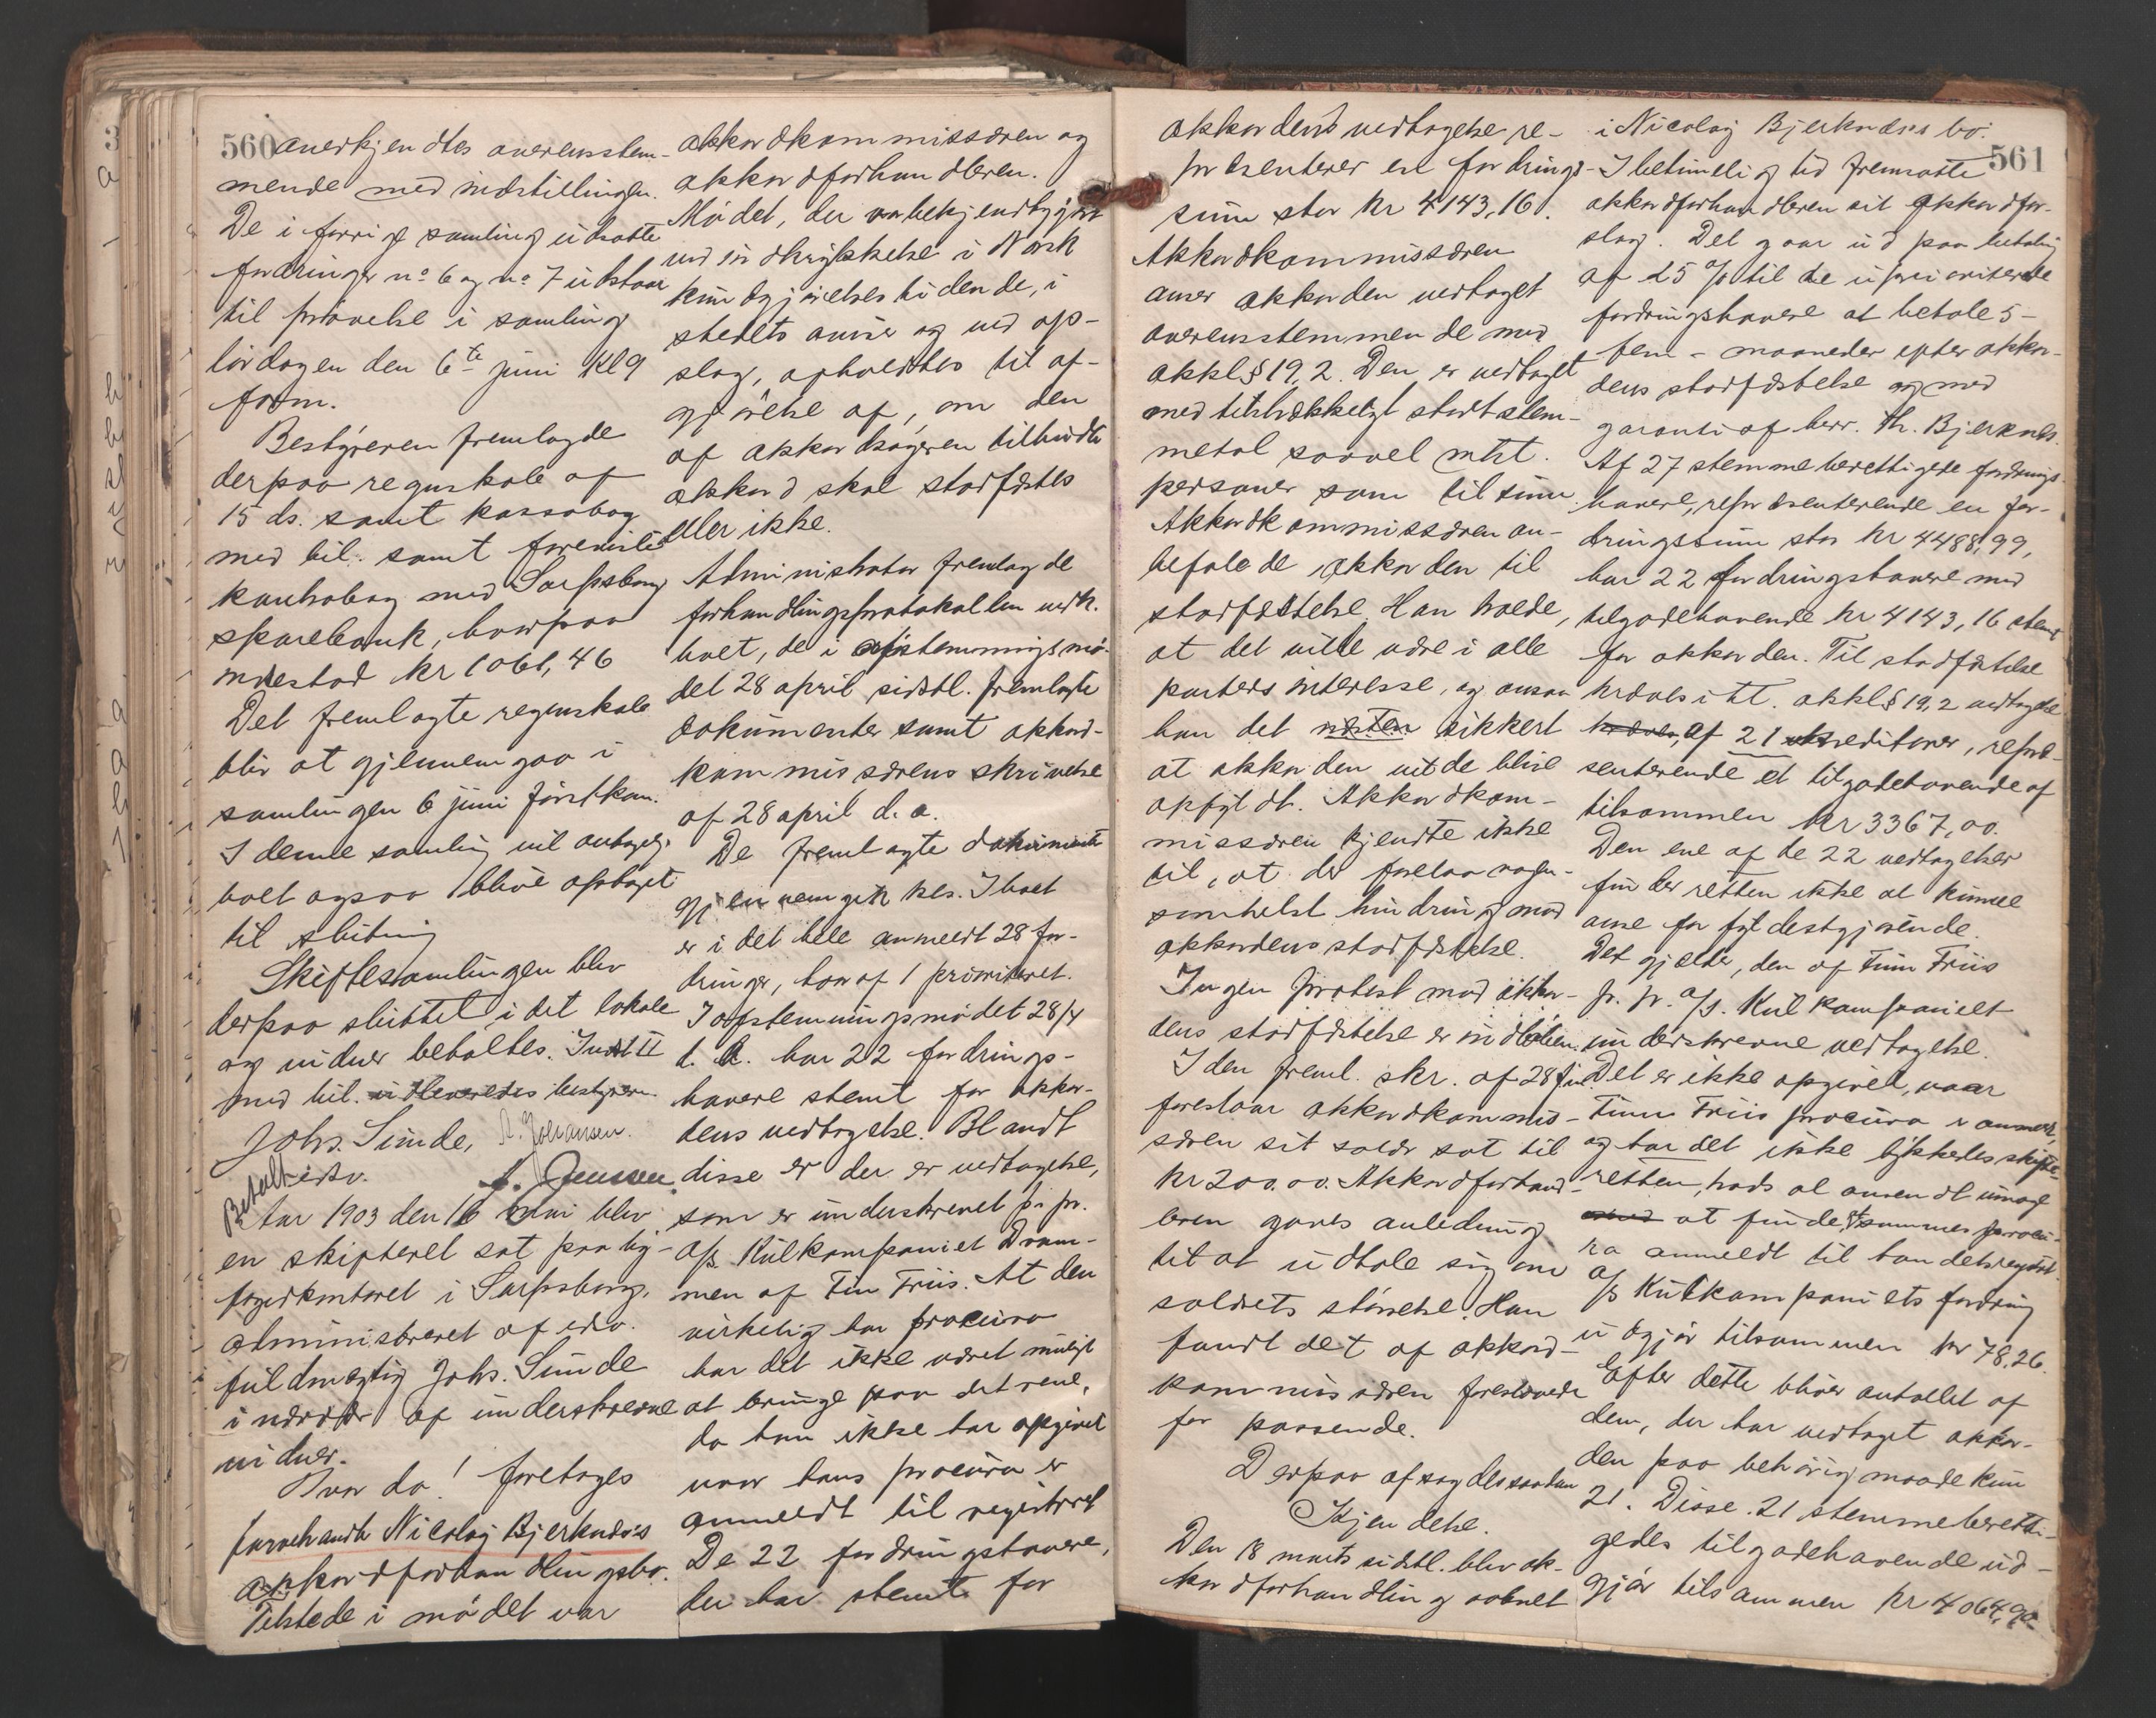 560
anerkjendtes overensstem-
mende med indstillingen.
De i forrige samling udsatte
fordringer no 6 og no 7 udstaar
til prøvelse i samling
lørdagen den 6te juni Kl 9
form.
Bestyreren fremlagde
derpaa regnskab af
15 ds. samt kassabog
med bil. samt foreviste
kontrabog med Sarpsborg
sparebank, hvorpaa
indestod kr 1061,46
Det fremlagte regnskab
blir at gjennemgaa i
samlingen 6 juni førstkom.
I denne samling vil antagelig
boet ogsaa blive optaget
til slutning
Skiftesamlingen blev
derpaa sluttet, i det lokale
og vidner beholdtes. Indst II
med bil. udleveredes bestyreren.
Johs. Sunde, A. Johansen.
edsv. A. Jensen.
Betalt
Aar 1903 den 16 mai blev
en skifteret sat paa by-
fogedkontoret i Sarpsborg,
administreret af edsv.
fuldmægtig Johs. Sunde
i nærvær af underskrevne
vidner.
Hvor da! foretoges
farvehandler Nicolaj Bjerknæs's
akkordforhandlingsbo.
Tilstede i mødet var
akkordkommissæren og
akkordforhandleren.
Mødet, der var bekjendtgjort
ved indrykkelse i Norsk
kundgjørelsestidende, i
stedets avise og ved op-
slag, afholdtes til af-
gjørelse af, om den
af akkordsøgeren tilbudte
akkord skal stadfæstes
eller ikke.
Administrator fremlagde
forhandlingsprotokollen vedk.
boet, de i afstemningsmø-
det 28 april sidstl. fremlagte
dokumenter samt akkord-
kommissærens skrivelse
af 28 april d. a.
De fremlagte dokumenter
gjennemgikkes. I boet
er i det hele anmeldt 28 for-
dringer, hvoraf 1 prioriteret.
I afstemningsmødet 28/4
d. A. har 22 fordrings-
havere stemt for akkor-
dens vedtagelse. Blandt
disse er der er vedtagelse,
som er underskrevet pr. pr.
A/S. Kulkompaniet Dram-
men af Finn Friis. At den
virkelig har procura
har det ikke været muligt
at bringe paa det rene,
da han ikke har opgivet
naar hans procura er
anmeldt til registeret
De 22 fordringshavere,
der har stemt for
akkordens vedtagelse re-
præsenterer en fordrings-
sum stor kr 4143,16.
Akkordkommissæren
anser akkorden vedtaget
overensstemmende med
akkl § 19, 2. Den er vedtaget
med tilstrækkeligt stort stem-
metal saavel mht.
personer som til sum.
Akkordkommissæren an-
befalede akkorden til
stadfæstelse. Han troede,
at det vilde være i alle
parters interesse, og ansaa
han det næsten sikkert
at akkorden vilde blive
opfyldt. Akkordkom-
missæren kjendte ikke
til, at der forelaa nogen-
somhelst hindring mod
akkordens stadfæstelse.
Ingen protest mod akkor-
dens stadfæstelse er indløben.
I den freml. skr. af 28
foreslaar akkordkommis-
særen sit salær sat til
kr 200.00. Akkordforhand-
leren gaves anledning
til at udtale sig om
salærets størrelse. Han
fandt det af akkord-
kommissæren foreslaaede
for passende.
Derpaa afsagdes saadan
Kjendelse.
Den 18 marts sidstl. blev ak-
kordforhandling aabnet
i Nicolaj Bjerknæs's bo.
561
I betimelig tid fremsatte
akkordforhandleren sit akkordfor-
slag. Det gaar ud paa betaling
af 25 % til de uprioriterede
fordringshavere at betale 5-
fem - maaneder efter akkor-
dens stadfæstelse og med
garanti af herr. Th. Bjerknæs.
Af 27 stemmeberettigede fordrings-
havere, repræsenterende en for-
dringssum stor kr 4488,99,
har 22 fordringshavere med
tilgodehavende kr 4143,16 stemt
for akkorden. Til stadfæstelse
kræves iflt. akkl § 19, 2 vedtagelse
kræves, af 21 kreditorer, repræ-
senterende et tilgodehavende af
tilsammen kr 3367,00.
Den ene af de 22 vedtagelser
finder retten ikke at kunne
anse for fyldestgjørende.
Det gjælder, den af Finn Friis
pr. pr. A/S. Kulkompaniet
underskrevne vedtagelse.
Det er ikke opgivet, naar
Finn Friis procura er anmeldt,
og har det ikke lykkedes skifte-
retten, trods al anvendt umage
at finde sammes procu-
ra anmeldt til handelsregistret.
A/S Kulkompaniets fordring
udgjør tilsammen kr 78,26.
Efter dette bliver antallet af
dem, der har vedtaget akkor-
den paa behørig maade kun
21. Disse 21 stemmeberetti-
gedes tilgodehavende ud-
gjør tilsammen kr 4064,90